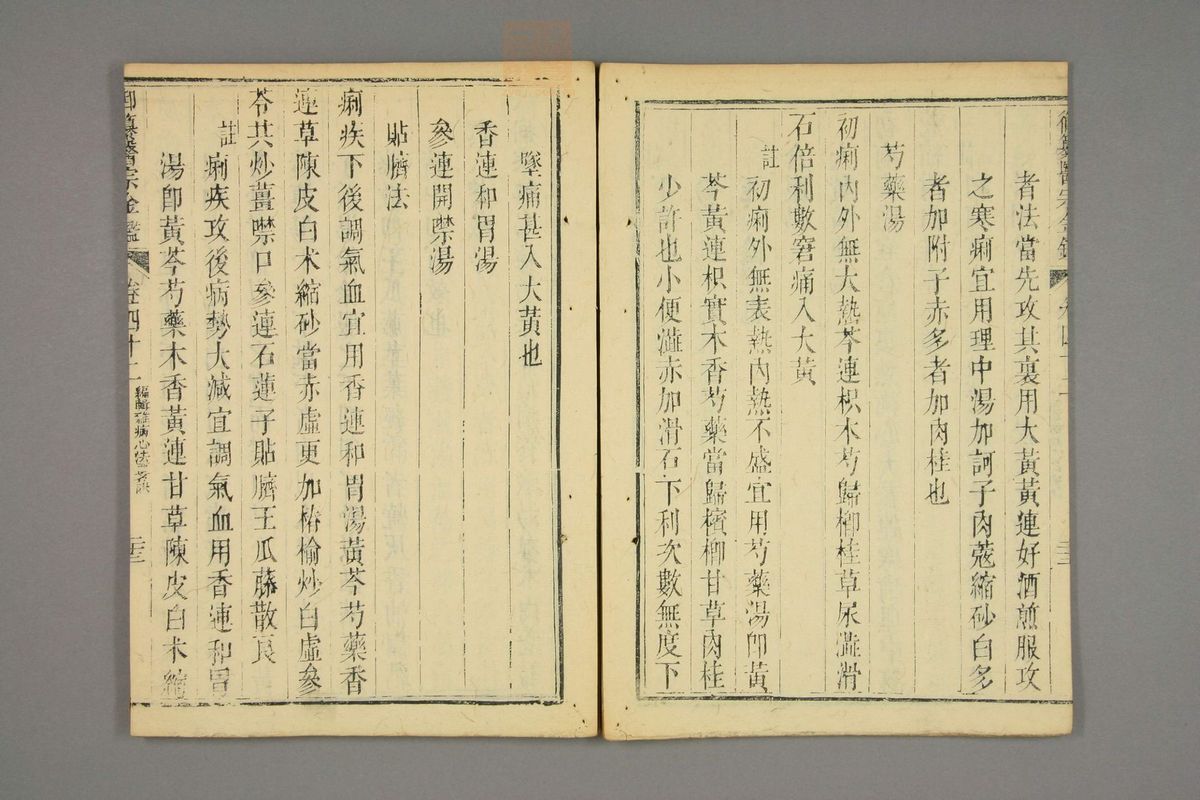 者法當先攻其裏用大黃黃連好酒煎服攻
之寒痢宜用理中湯加訶子肉蔻縮砂白多
者加附子赤多者加肉桂也
芍藥湯
初痢內外無大熱芩連枳木芍歸梹桂草尿澁滑
石倍利數窘痛入大黃
註
初痢外無表熱內熱不盛宜用芍藥湯卽黃
芩黃連枳實木香芍藥當歸檳榔甘草肉桂
少許也小便澁赤加滑石下利次數無度下
墜痛甚入大黃也
香連和胃湯
參連開噤湯
貼臍法
痢疾下後調氣血宜用香連和胃湯黃芩芍藥香
連草陳皮白术縮砂當赤虛更加椿榆炒白虛參
苓共炒薑噤口參連石蓮子貼臍王瓜藤散良
註
痢疾攻後病勢大減宜調氣血用香連和胃
湯卽黃芩芍藥木香黃連甘草陳皮白术縮
御纂醫宗金鑑 卷四十二 編輯雜病心法要訣